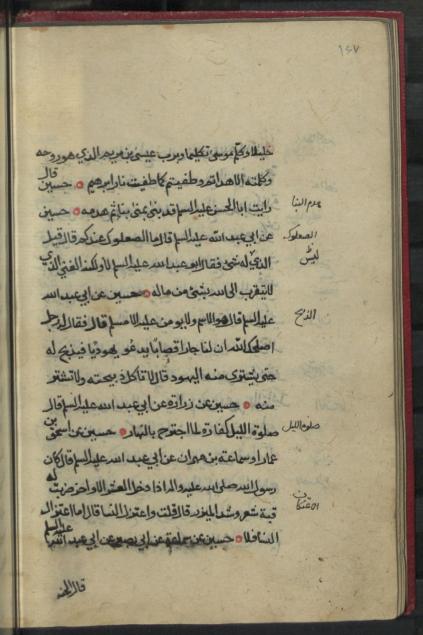 ١٤٧
خليلا وكلم موسى تكليما وبرب عيسى بن مريم الذي هو روحه
وكلمته الا هدأتم وطفيتم كما طفيت نار ابرهيم حسين قال
رايت ابا الحسن عليه السلم قد بنى بمنى بناء ثم هدمه حسين
هدم البنا
عن ابي عبد الله عليه السلم قال ما الصعلوك عندكم قال قيل
الصعلوك
الذي ليس له شئ فقال ابو عبد الله عليه السلم لا ولكنه الغني الذي
لا يتقرب الى الله بشئ من ماله حسين عن ابي عبد الله
عليه السلم قال هو الاسم ولا يومن عليه الا مسلم قال فقال له رجل
الذبح
اصلحك الله ان لنا جارا قصابا يدعو يهوديا فيذبح له
حتى يشتري منه اليهود قال لا تاكل ذبيحته ولا تشتر
منه حسين عن زرارة عن ابي عبد الله عليه السلم قال
صلوة الليل كفارة لما اجترح بالنهار حسين عن اسحق بن
صلوة الليل
عمار او سماعة بن مهران عن ابي عبد الله عليه السلم قال كان
رسول الله صلى الله عليه واله اذا دخل العشر الاواخر ضربت له
الاعتكاف
قبة شعر وشد الميزر قال قلت واعتزل النسا قال اما اعتزال
النسا فلا حسين عن سماعة عن ابي بصير عن ابي عبد الله عليه السلم
قال